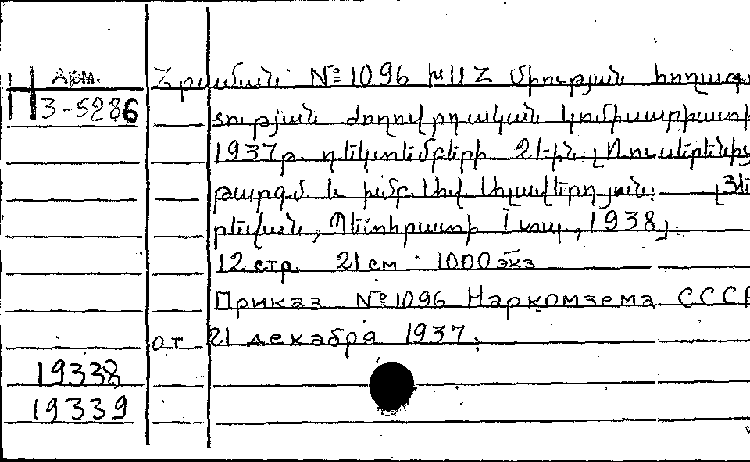 Арм.
H 3-5286
Հրաման № 1096 ԽՍՀ Միության հողագ
տության ժողովրդական կոմիսարիատի
1937թ. դեկտեմբերի 21-ին. [Ռուսերենից
թարգմ և խմբ. Լևոն — [Յե
րևան, Պետհրատ 1938].
12 стр. 21 см 1000 экз
Приказ № 1096 Наркомзема СССР
от 21 декабря 1937.
19338
19339